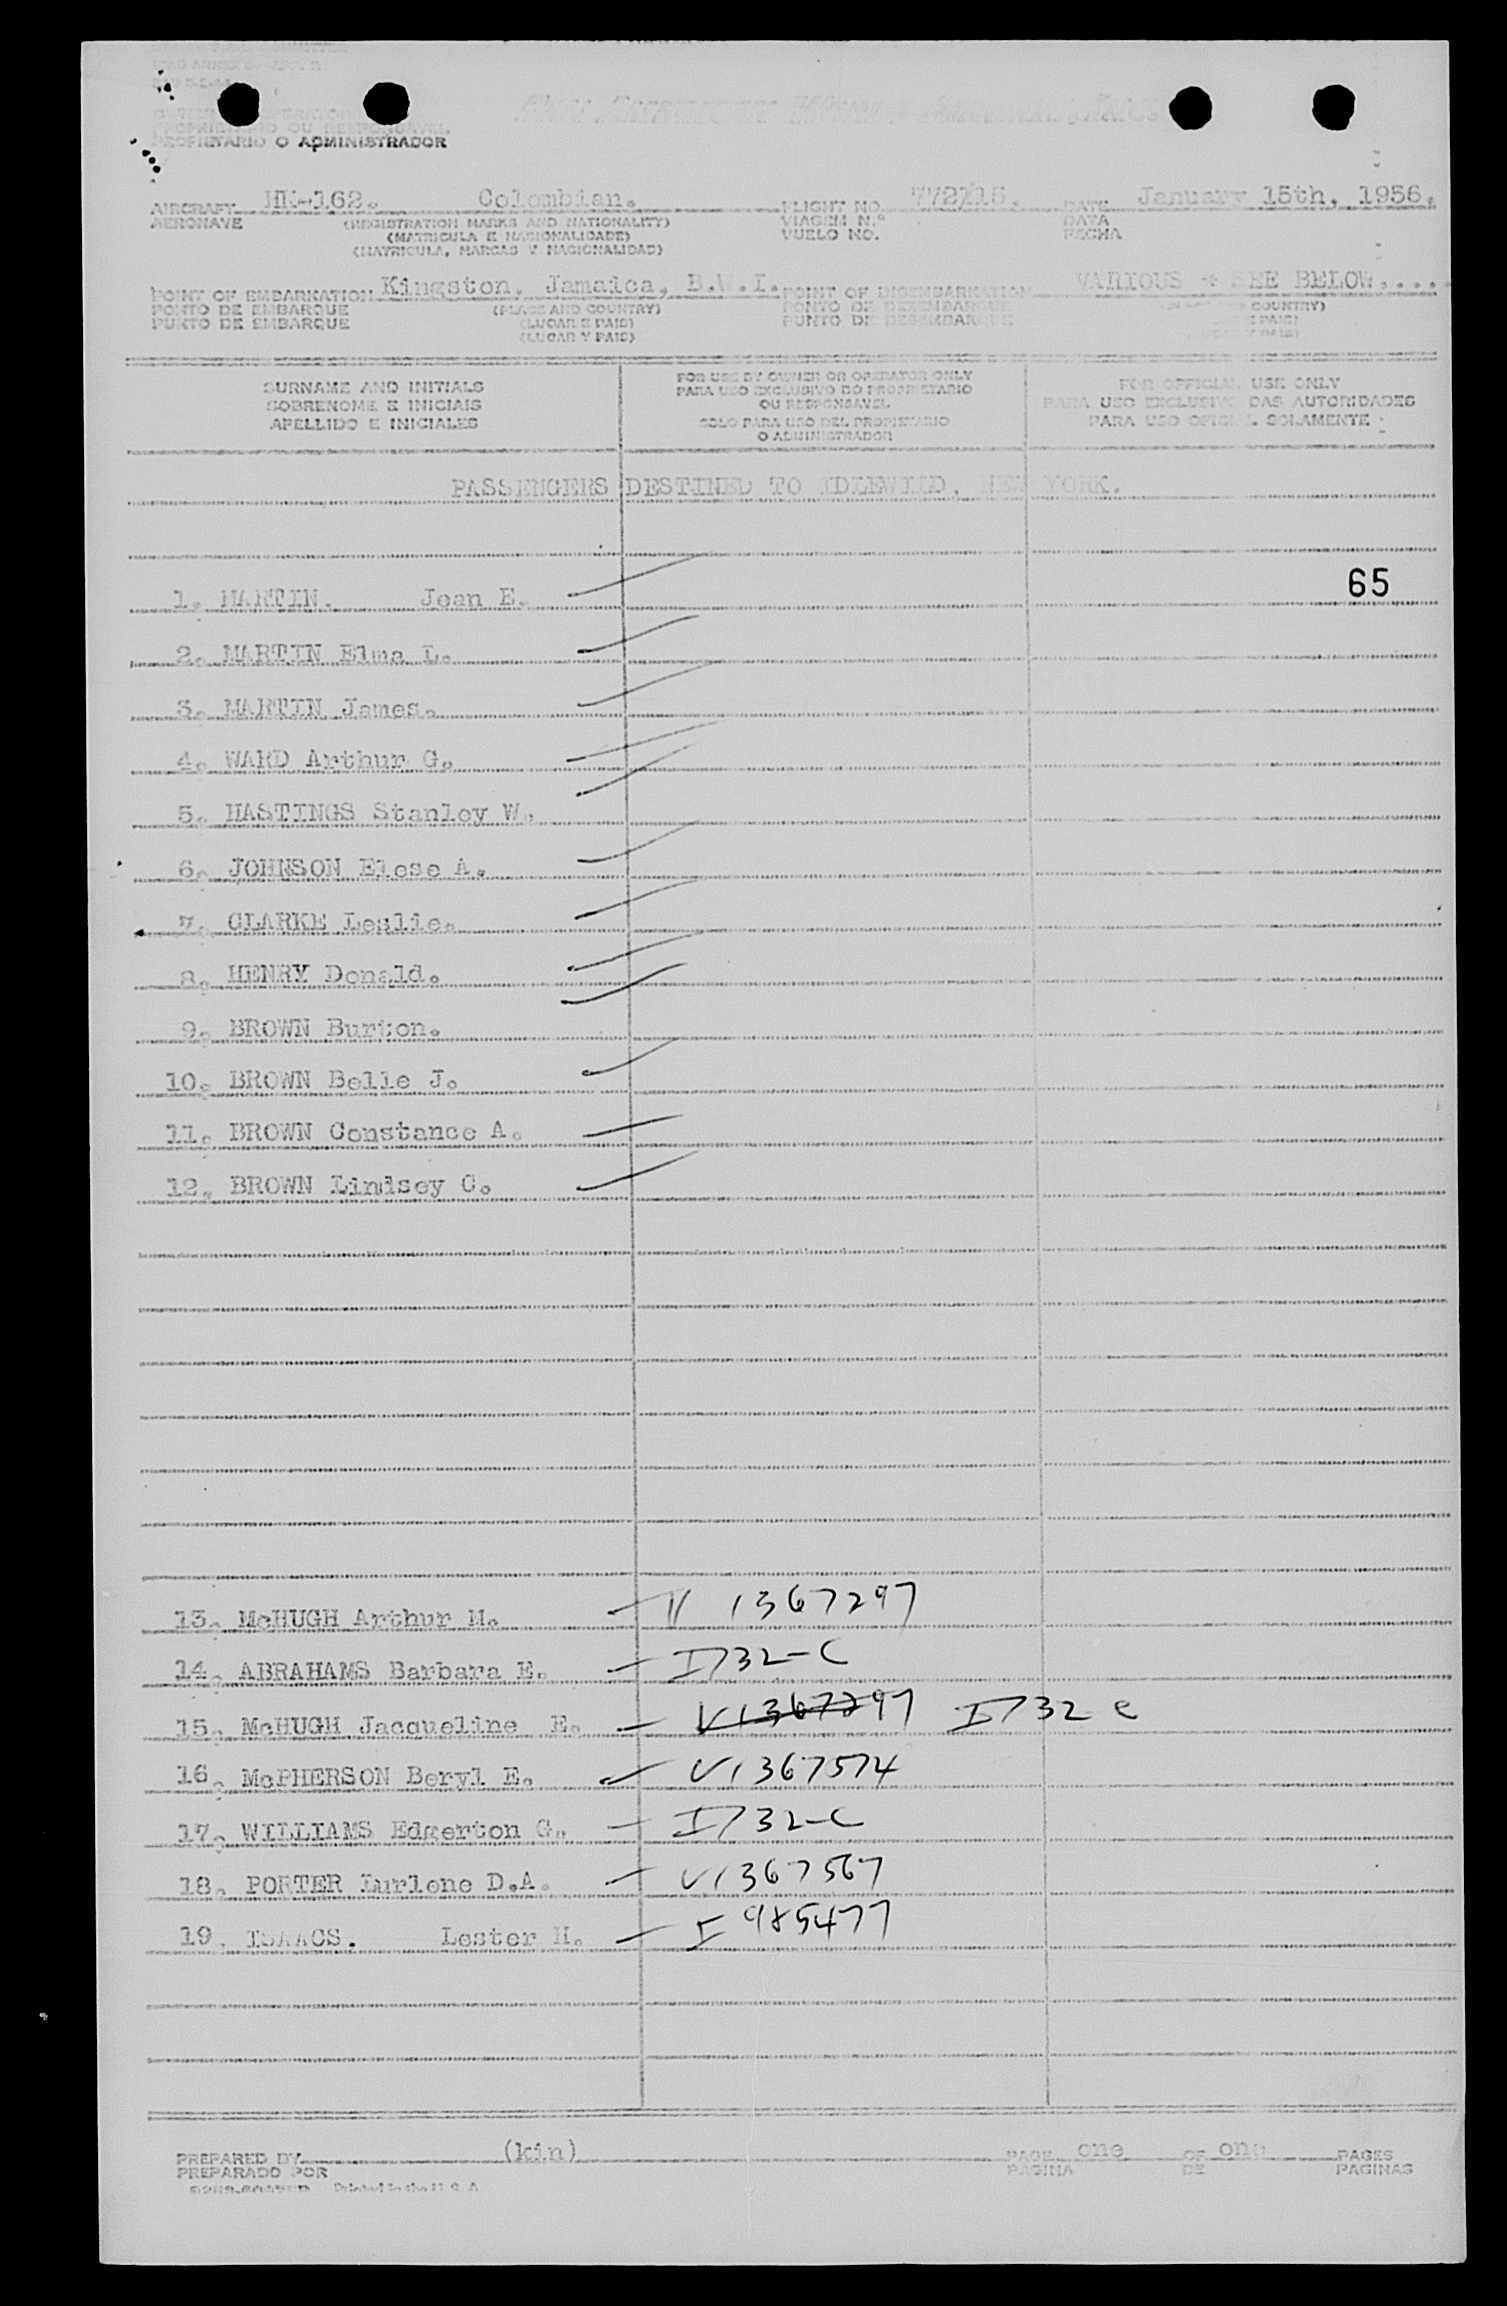 PROPIETARIO O ADMINISTRADOR
AIRCRAFT HK-162. Colombian. FLIGHT NO. 772/15. DATE January 15th, 1956.
AERONAVE (REGISTRATION MARKS AND NATIONALITY) VIAGEM N.º DATA
(MATRICULA E NACIONALIDADE) VUELO NO. FECHA
(MATRICULA, MARCAS Y NACIONALIDAD)
POINT OF EMBARKATION Kingston, Jamaica, B.W.I. POINT OF DISEMBARKATION VARIOUS - SEE BELOW.....
PONTO DE EMBARQUE (PLACE AND COUNTRY) PONTO DE DESEMBARQUE COUNTRY)
PUNTO DE EMBARQUE (LUGAR E PAIS) PUNTO DE DESEMBARQUE E PAIS)
(LUGAR Y PAIS) Y PAIS)
SURNAME AND INITIALS
SOBRENOME E INICIAIS
APELLIDO E INICIALES
FOR USE BY OWNER OR OPERATOR ONLY
PARA USO EXCLUSIVO DO PROPRIETARIO
OU RESPONSAVEL
SOLO PARA USO DEL PROPIETARIO
O ADMINISTRADOR
FOR OFFICIAL USE ONLY
PARA USO EXCLUSIVO DAS AUTORIDADES
PARA USO OFICIAL SOLAMENTE
PASSENGERS DESTINED TO IDLEWILD, NEW YORK.
65
1. MARTIN. Jean E.
2. MARTIN Elma L.
3. MARTIN James.
4. WARD Arthur G.
5. HASTINGS Stanley W.
6. JOHNSON Elese A.
7. CLARKE Leslie.
8. HENRY Donald.
9. BROWN Burton.
10. BROWN Belle J.
11. BROWN Constance A.
12. BROWN Lindsey C.
13. McHUGH Arthur M. V 1367297
14. ABRAHAMS Barbara E. I732-C
15. McHUGH Jacqueline E. V1367297 I732 C
16. McPHERSON Beryl E. V1367574
17. WILLIAMS Edgerton G. I732-C
18. PORTER Lurlene D.A. V1367567
19. ISAACS. Lester H. I 985477
PREPARED BY (kin) PAGE one OF one PAGES
PREPARADO POR PAGINA DE PAGINAS
Printed in the U.S.A.